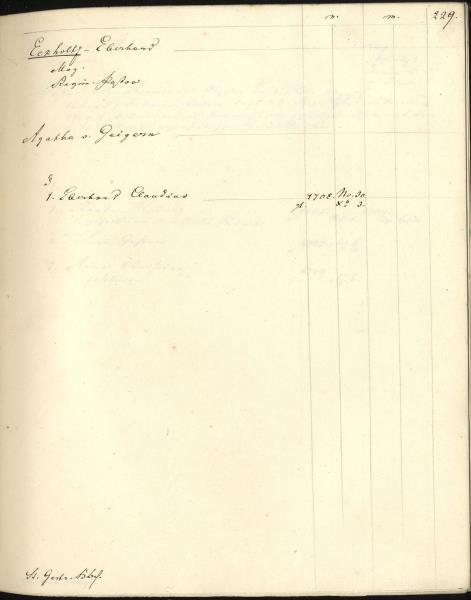 n. m. 229.
Eckholtz - Eberhard
Mag.
Regim. Pastor
Agatha v. Geigern
3
1. Eberhard Claudius 1708. No. 30
Xb 3.
St. Gertr.